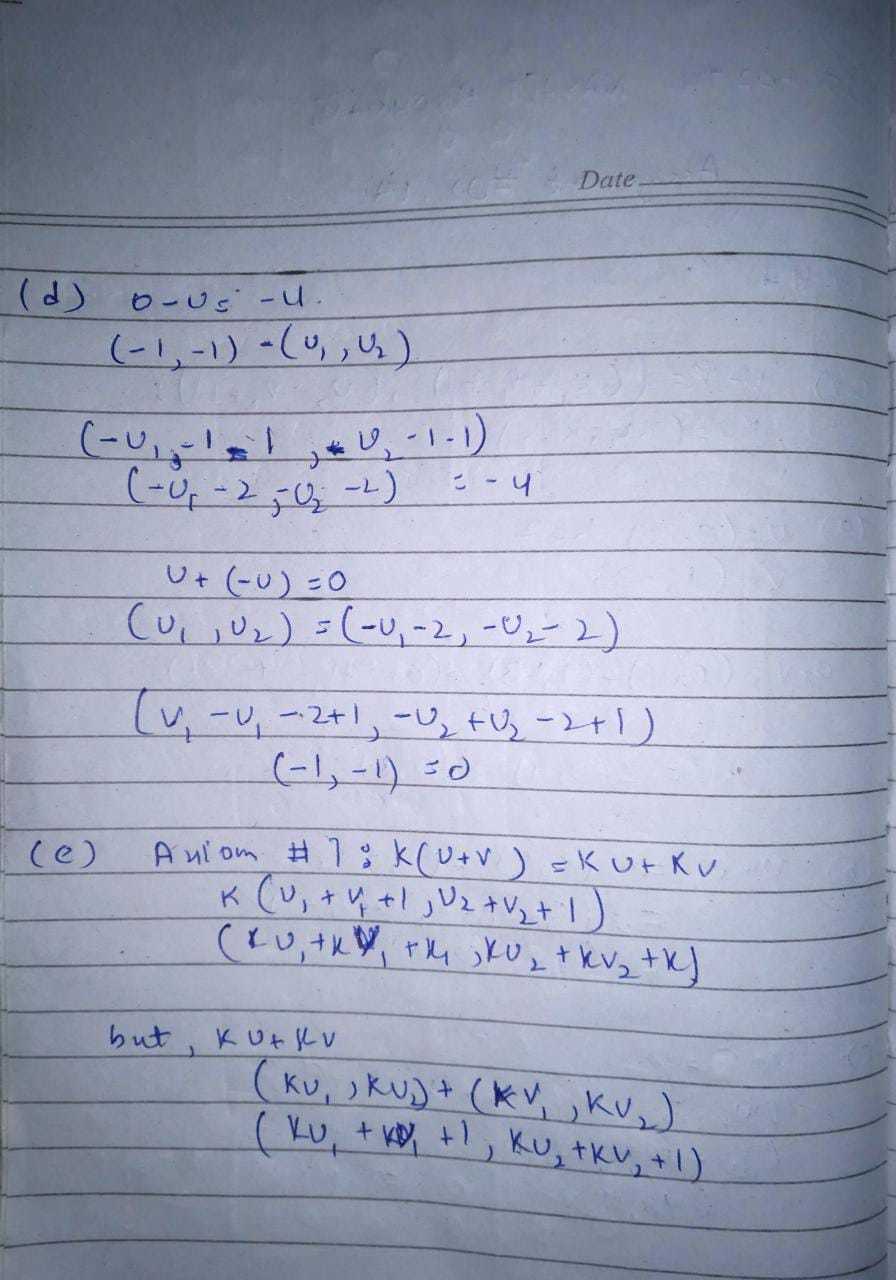 Date
(d) 0-u = -u.
(-1,-1) - (u₁, u₂)
(-u₁ -1 -1, -u₂ -1-1)
(-u₁ -2, -u₂ -2) = -u
u + (-u) = 0
(u₁, u₂) = (-u₁-2, -u₂-2)
(u₁ -u₁ -2+1, -u₂ +u₂ -2+1)
(-1, -1) = 0
(e) Axiom # 7: K(u+v) = Ku + Kv
K (u₁ + v₁ +1, u₂ +v₂ +1)
(Ku₁ +Kv₁ +K, Ku₂ +Kv₂ +K)
but, Ku + Kv
(Ku₁, Ku₂) + (Kv₁, Kv₂)
(Ku₁ + Kv₁ +1, Ku₂ +Kv₂ +1)